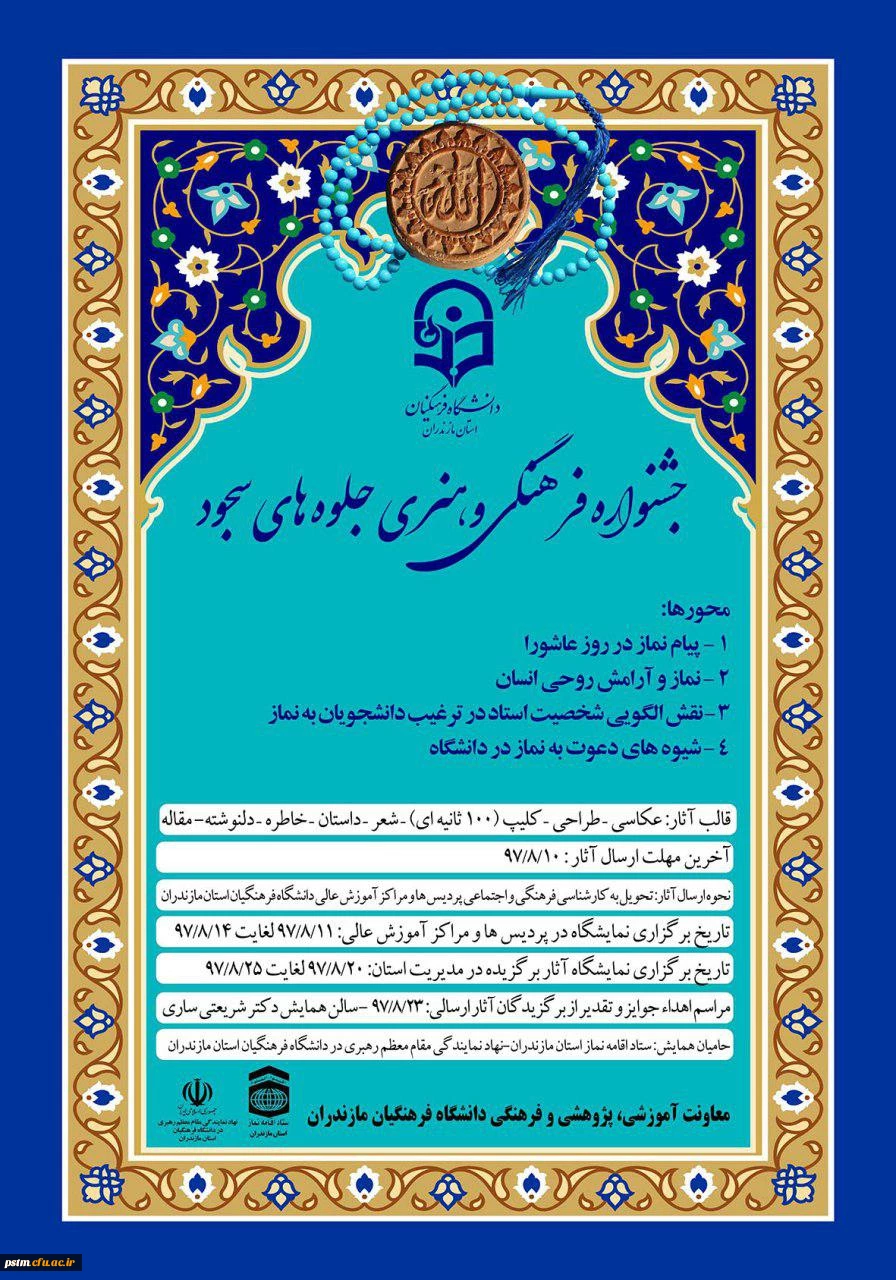 الله
دانشگاه فرهنگیان
استان مازندران
جشنواره فرهنگی و هنری جلوه های سجود
محورها:
۱ - پیام نماز در روز عاشورا
۲ - نماز و آرامش روحی انسان
۳- نقش الگویی شخصیت استاد در ترغیب دانشجویان به نماز
٤ - شیوه های دعوت به نماز در دانشگاه
قالب آثار: عکاسی - طراحی - کلیپ (۱۰۰ ثانیه ای) - شعر - داستان - خاطره - دلنوشته - مقاله
آخرین مهلت ارسال آثار : ۹۷/۸/۱۰
نحوه ارسال آثار: تحویل به کارشناسی فرهنگی و اجتماعی پردیس ها و مراکز آموزش عالی دانشگاه فرهنگیان استان مازندران
تاریخ برگزاری نمایشگاه در پردیس ها و مراکز آموزش عالی: ۹۷/۸/۱۱ لغایت ۹۷/۸/۱۴
تاریخ برگزاری نمایشگاه آثار برگزیده در مدیریت استان: ۹۷/۸/۲۰ لغایت ۹۷/۸/۲۵
مراسم اهداء جوایز و تقدیر از برگزیدگان آثار ارسالی: ۹۷/۸/۲۳ - سالن همایش دکتر شریعتی ساری
حامیان همایش: ستاد اقامه نماز استان مازندران - نهاد نمایندگی مقام معظم رهبری در دانشگاه فرهنگیان استان مازندران
معاونت آموزشی، پژوهشی و فرهنگی دانشگاه فرهنگیان مازندران
ستاد اقامه نماز
استان مازندران
جمهوری اسلامی ایران
نهاد نمایندگی مقام معظم رهبری
در دانشگاه فرهنگیان
استان مازندران
pstm.cfu.ac.ir